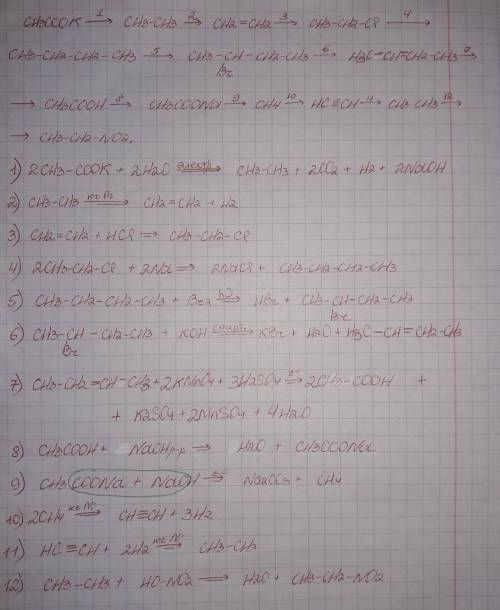 CH3COOK 1→ CH3-CH3 2→ CH2=CH2 3→ CH3-CH2-Cl 4→
CH3-CH2-CH2-CH3 5→ CH3-CH-CH2-CH3 6→ H3C-CH=CH-CH3 7→
Br
→ CH3COOH 8→ CH3COONa 9→ CH4 10→ HC≡CH 11→ CH3-CH3 12→
→ CH3-CH2-NO2.
1) 2CH3-COOK + 2H2O электр.→ CH3-CH3 + 2CO2 + H2 + 2NaOH
2) CH3-CH3 kt Pt→ CH2=CH2 + H2
3) CH2=CH2 + HCl → CH3-CH2-Cl
4) 2CH3-CH2-Cl + 2Na → 2NaCl + CH3-CH2-CH2-CH3
5) CH3-CH2-CH2-CH3 + Br2 hν→ HBr + CH3-CH-CH2-CH3
Br
6) CH3-CH-CH2-CH3 + KOH спирт.→ KBr + H2O + H3C-CH=CH2-CH3
Br
7) CH3-CH2=CH-CH3 + 2KMnO4 + 3H2SO4 t°→ 2CH3-COOH +
+ K2SO4 + 2MnSO4 + 4H2O
8) CH3COOH + NaOH р-р → H2O + CH3COONa
9) CH3COONa + NaOH t°→ Na2CO3 + CH4
10) 2CH4 kt Ni→ CH≡CH + 3H2
11) HC≡CH + 2H2 kt Ni→ CH3-CH3
12) CH3-CH3 + HO-NO2 → H2O + CH3-CH2-NO2